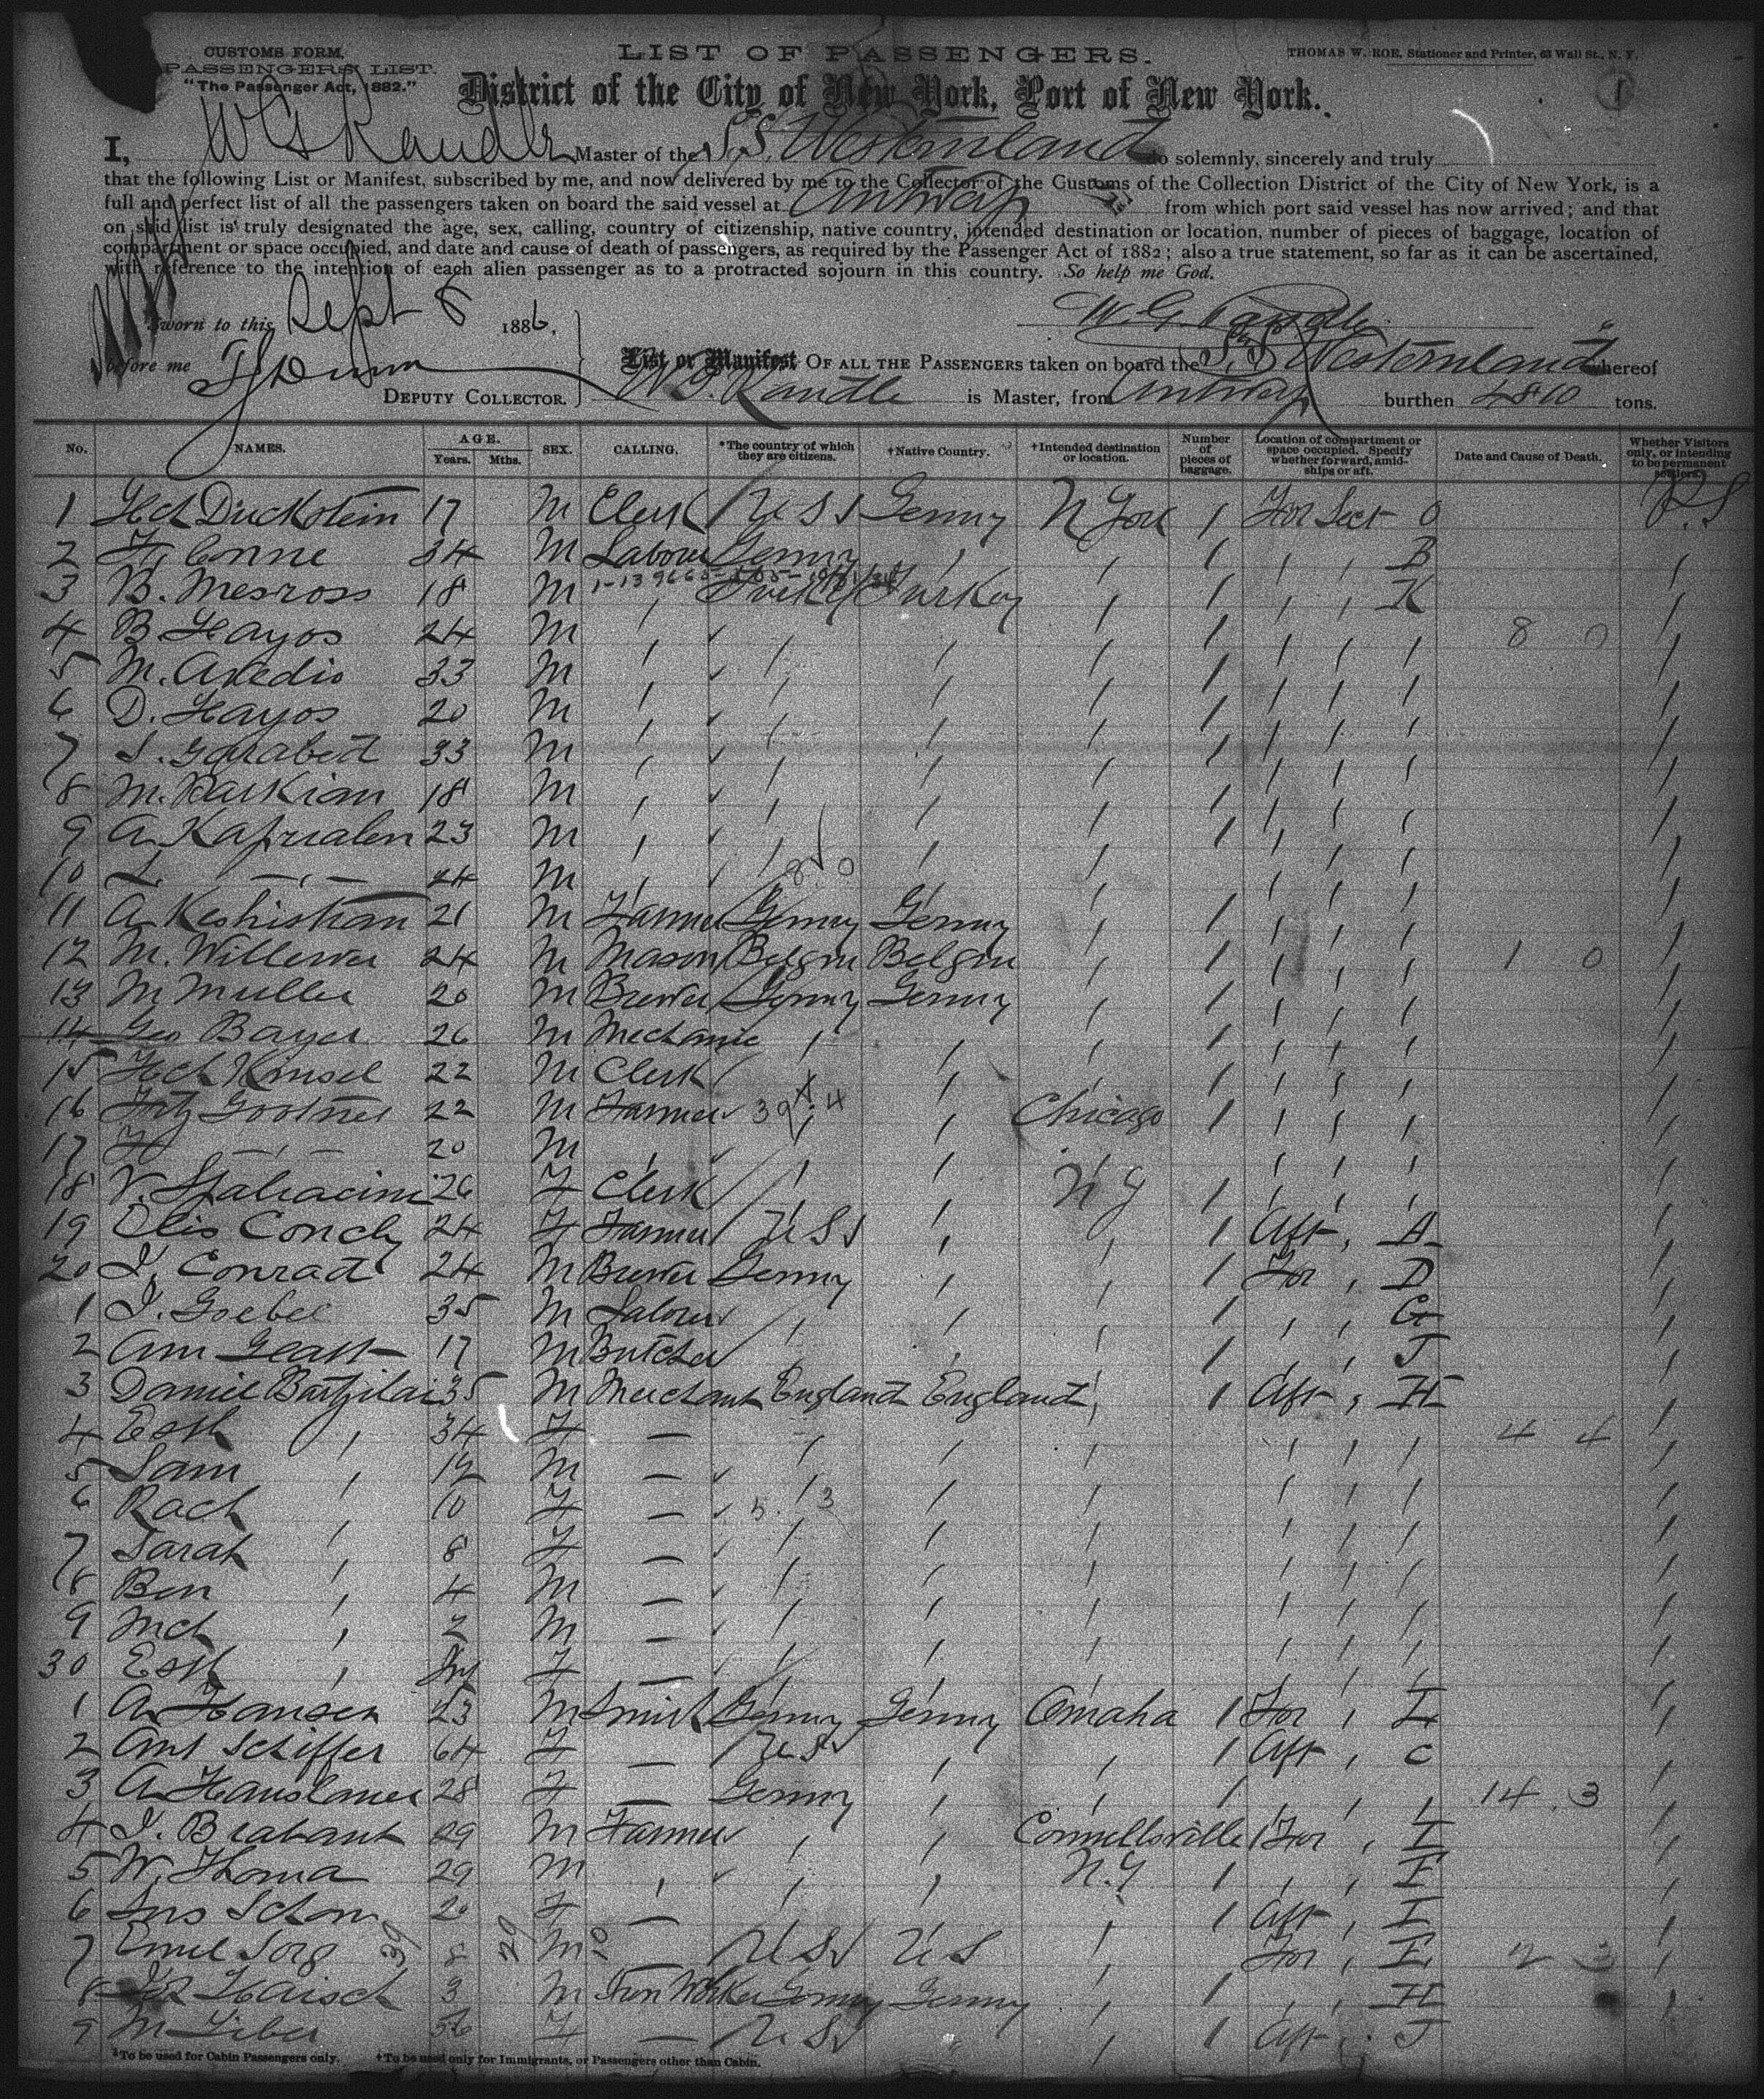 CUSTOMS FORM.
PASSENGERS' LIST.
"The Passenger Act, 1882."
LIST OF PASSENGERS.
THOMAS W. ROE, Stationer and Printer, 63 Wall St., N. Y.
1
District of the City of New York, Port of New York.
I, W G Randle Master of the S.S. Westernland do solemnly, sincerely and truly
that the following List or Manifest, subscribed by me, and now delivered by me to the Collector of the Customs of the Collection District of the City of New York, is a
full and perfect list of all the passengers taken on board the said vessel at Antwerp from which port said vessel has now arrived; and that
on said list is truly designated the age, sex, calling, country of citizenship, native country, intended destination or location, number of pieces of baggage, location of
compartment or space occupied, and date and cause of death of passengers, as required by the Passenger Act of 1882; also a true statement, so far as it can be ascertained,
with reference to the intention of each alien passenger as to a protracted sojourn in this country. So help me God.
Sworn to this Sept 8 1886,
W. G. Randle
before me
List or Manifest OF ALL THE PASSENGERS taken on board the S.S Westernland whereof
DEPUTY COLLECTOR. W. G. Randle is Master, from Antwerp burthen 4810 tons.
No. NAMES. AGE. Years. Mths. SEX. CALLING. *The country of which they are citizens. †Native Country. †Intended destination or location. Number of pieces of baggage. Location of compartment or space occupied. Specify whether forward, amidships or aft. Date and Cause of Death. Whether Visitors only, or intending to be permanent settlers.
1 Hch Dickstein 17 M Clerk U S Germy N York 1 For Sect O P.S
2 F. Conne 34 M Labour Germy , , 1 , , B
3 B. Mesross 18 M , Turkey Turkey , 1 , , K
4 B. Hayos 24 M 8 0
5 M. Avedis 33 M
6 D. Hayos 20 M
7 S. Garabed 33 M
8 M. Barkian 18 M
9 A. Kaprialen 23 M
10 L. — , — 24 M 8 0
11 A. Keshishian 21 M Farmer Germy Germy
12 M. Willems 24 M Mason Belgm Belgm 1 0
13 M Muller 20 M Brewer Germy Germy
14 Geo Bayer 26 M Mechanic
15 Hch Kinsel 22 M Clerk
16 Fritz 22 M Farmer 39 4 Chicago 1
17 F — , — 20 M
18 V. 26 F Clerk N Y 1
19 Elis Conch 24 F Farmer U S , , 1 Aft , A
20 J. Conrad 24 M Brewer Germy , , 1 For , D
1 J. Goebel 35 M Labour , , , 1 , , G
2 17 M Butcher , , , 1 , , J
3 Daniel Bartzilai 35 M Merchant England England , 1 Aft , H
4 Esth , 34 F — 4 4
5 Sam , 12 M —
6 Rach , 10 F — 5 3
7 Sarah , 8 F —
8 Ben , 4 M —
9 Mch , 2 M —
30 Esth , Inf F —
1 A. Hansen 23 M Smith Germy Germy Omaha 1 For , I
2 Ant Schiffer 64 F — U S , , 1 Aft , C
3 A. 28 F — Germy , , 1 14 3
4 J. Brabant 29 M Farmer , , Connellsville 1 For , I
5 W. Thoma 29 M , , , N.Y 1 , , I
6 Schom 20 F — 1 Aft , I
7 Emil Sorg 8 M U S U S , For , I 2 3
8 Haisch 3 M Iron Worker Germy Germy , 1 , , H
9 M Liber 56 F — U S " , 1 Aft , J
*To be used for Cabin Passengers only. †To be used only for Immigrants, or Passengers other than Cabin.